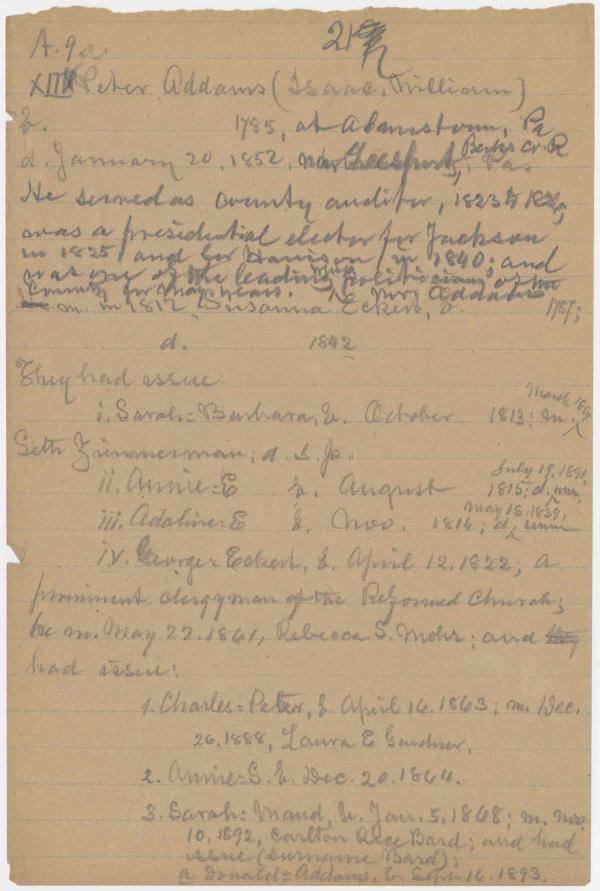 A. 9 a. 21
XIII Peter Addams (Isaac, William)
b. 1785, at Adamstown, Pa
Berks Co R
d. January 20, 1852, near Leesport, Pa.
He served as county auditor, 1823 to
was a presidential elector for Jackson
in 1825 and for Harrison in 1840; and
was one of the leading politicians of the
County for many years. Mr. Addams
m. in 1812 Susanna Eckert, b. 1787;
d. 1842
They had issue:
March 18
i. Sarah=Barbara, b. October 1813; m.
Seth Zimmerman; d. s. p.
July 19, 1891,
ii. Annie=E b. August 1815; d. unm.
May 18, 1839,
iii. Adaline=E b. Nov. 1816; d. unm
iv. George=Eckert, b. April 12, 1822; a
prominent clergyman of the Reformed Church;
he m. May 22, 1861, Rebecca S. Mohr; and
had issue:
1. Charles=Peter, b. April 16, 1863; m. Dec.
26, 1888, Laura E Gardner.
2. Annie=S. b. Dec. 20, 1864.
3. Sarah=Maud, b. Jan. 5, 1868; m. Nov.
10, 1892, Carlton Rice Bard; and had
issue (surname Bard):
a Donald=Addams, b. Sept. 16, 1893.